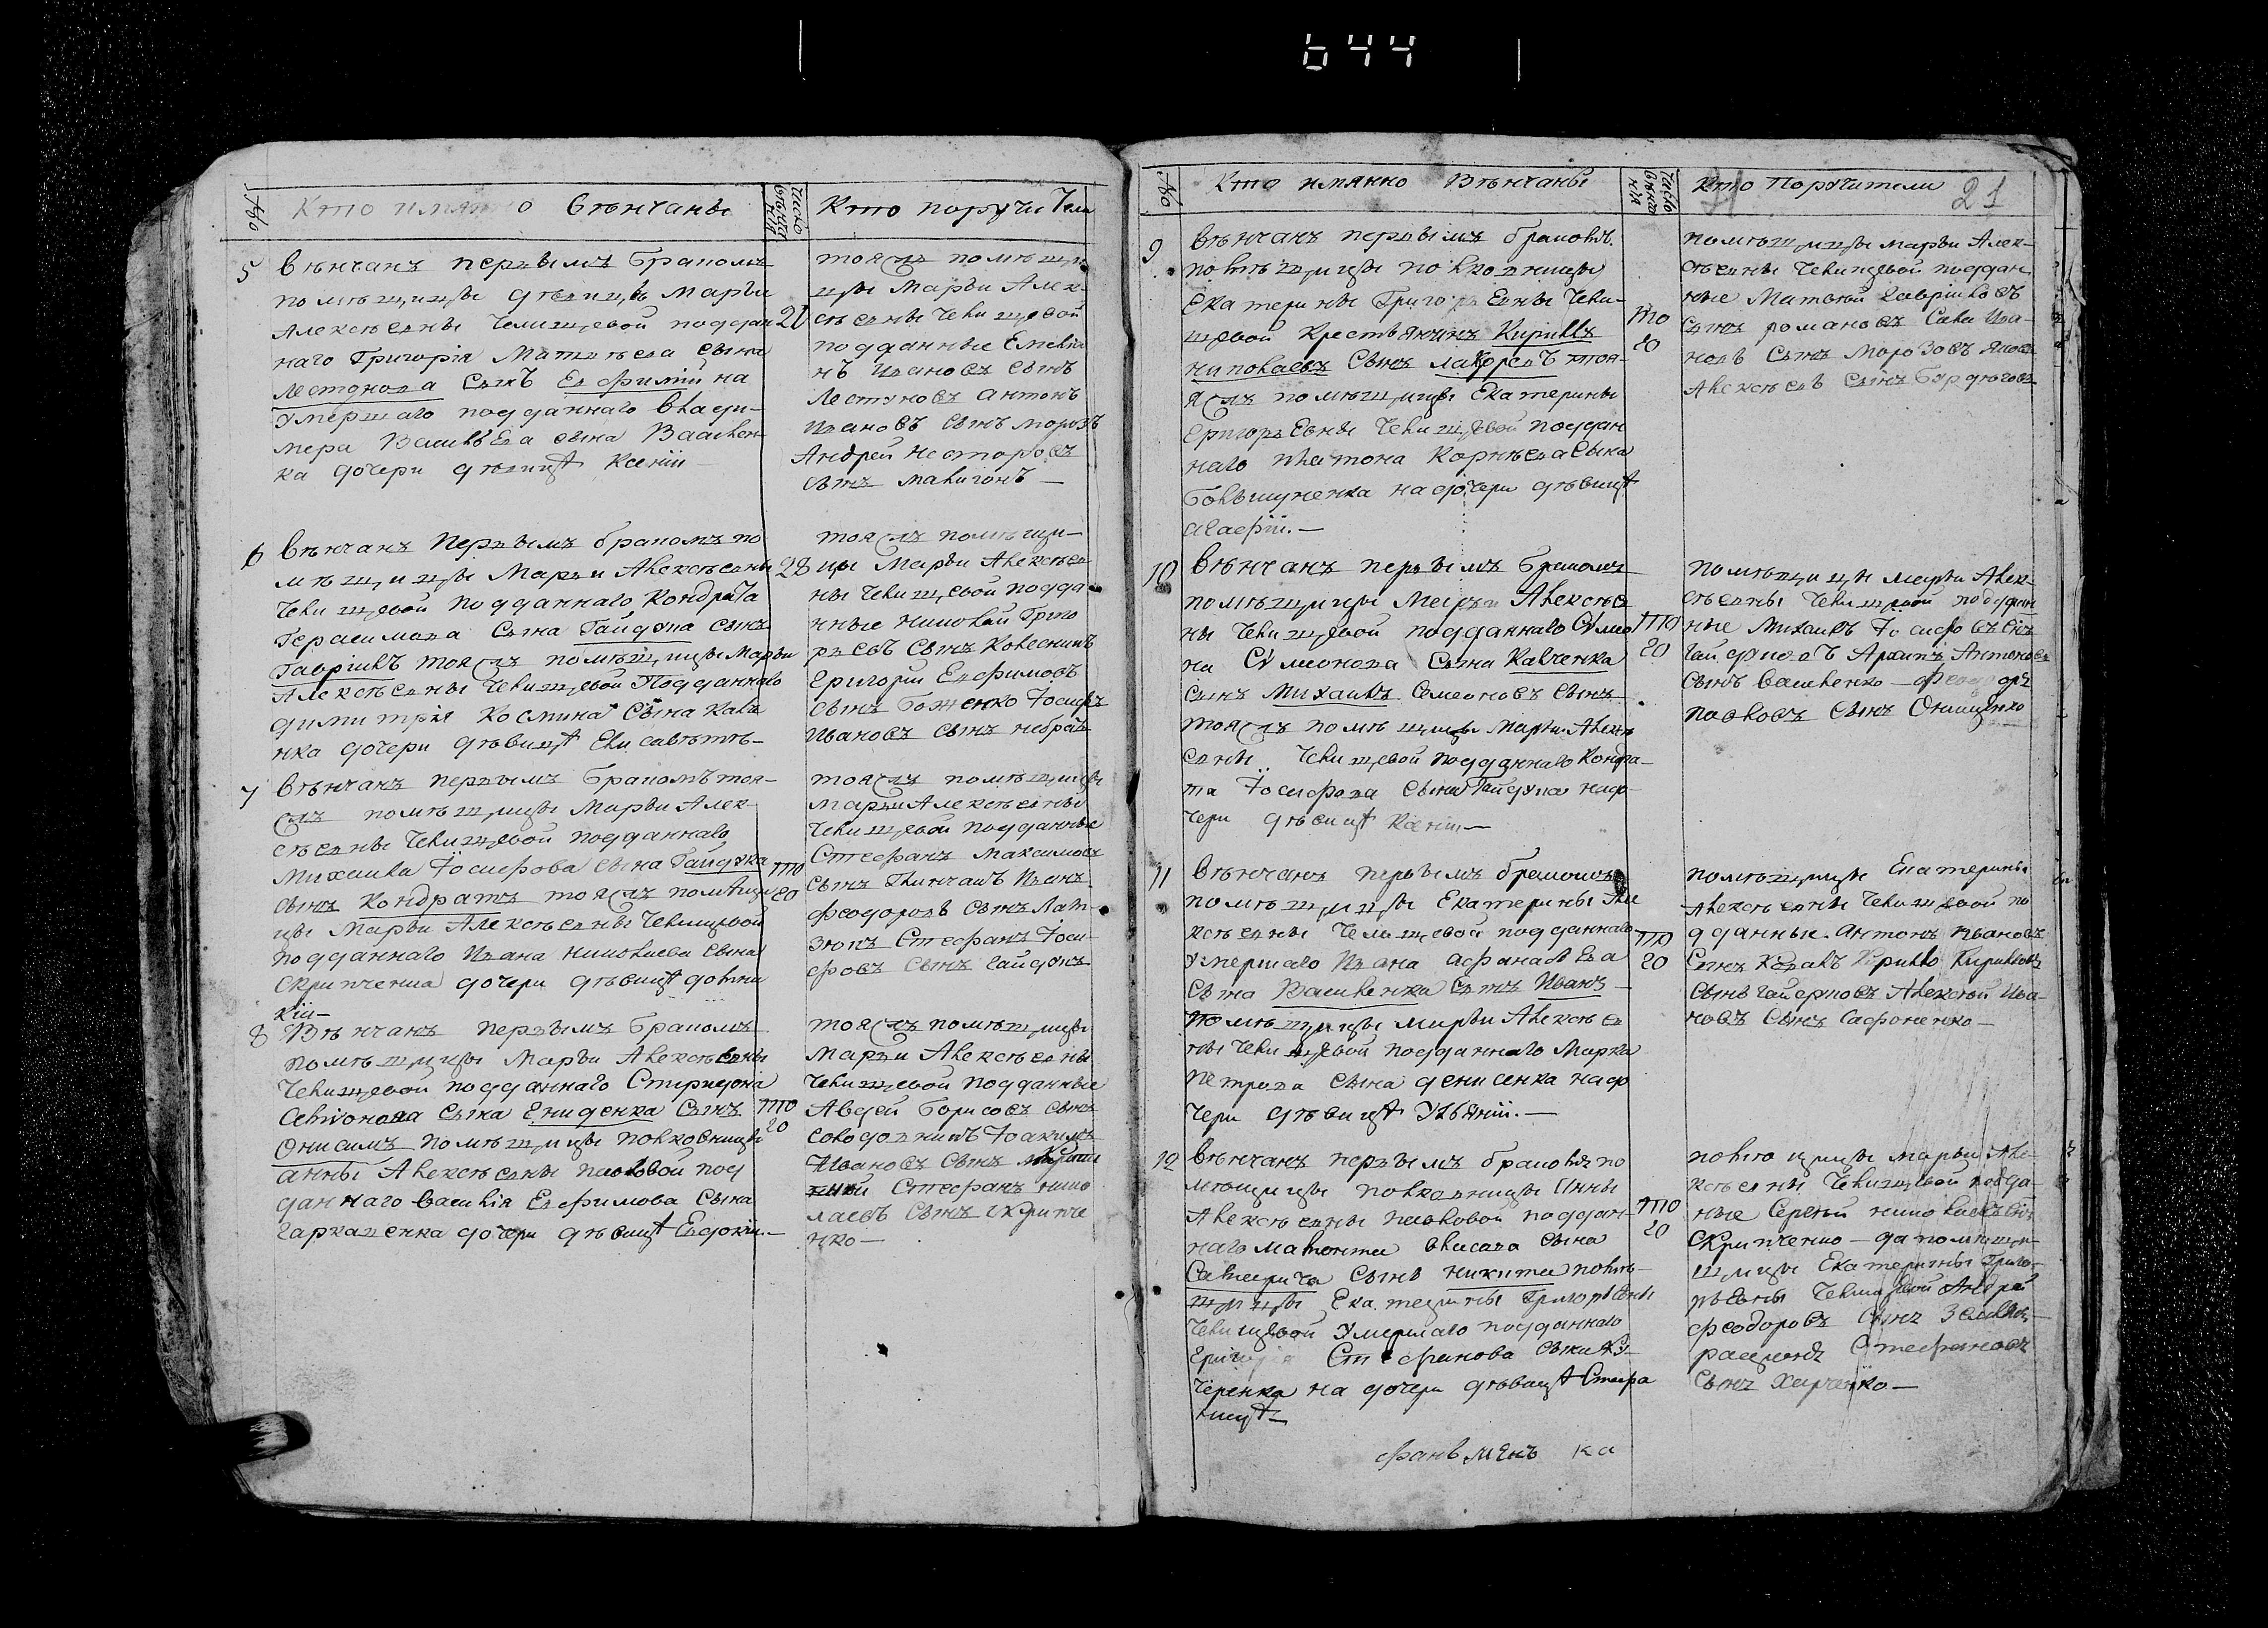 644
№ Кто имянно Вѣнчаны Число вѣнчания Кто поручители
5 Вѣнчанъ первымъ бракомъ
помѣщицы дѣвицѣ Марьи
Алексѣевны Челищевой поддан
наго Григорія Матвѣева сына
Лестунова сынъ Евфимій на
умершаго подданнаго Влади-
мера Васильева сына Васильен
ка дочери дѣвицѣ Ксеніи
21
тояжъ помѣщи
цы Марьи Алек-
сѣевны Челищевой
подданные Емелiа
нъ Ивановъ сынъ
Лестуновъ Антонъ
Ивановъ сынъ морозъ
Андрей Несторовъ
сынъ Макигонъ —
6 Вѣнчанъ первымъ бракомъ по
мѣщицы Марьи Алексѣевны
Челищевой подданнаго Кондрата
Герасимова сына Гайдука сынъ
Гавріилъ тояжъ помѣщицы Марьи
Алексѣевны Челищевой подданнаго
димитрія Космина сына Кавче
нка дочери дѣвицѣ Елисаветѣ-
28
тояжъ помѣщи-
цы Марьи Алексѣев
ны Челищевой подда
нные Николай Григо
рьевъ сынъ Колесникъ
Григорій Евфимовъ
сынъ Боженко Іосифъ
Ивановъ сынъ небрать
7 Вѣнчанъ первымъ бракомъ тоя-
жъ помѣщицы Марьи Алек
сѣевны Челищевой подданнаго
Михаила Іосифова сына Гайдука
сынъ Кондратъ тояжъ помѣщи
цы Марьи Алексѣевны Челищевой
подданнаго Ивана Николаева сына
Скрипченка дочери дѣвицѣ
кіи-
то
20
тояжъ помѣщицы
Марьи Алексѣевны
Челищевой подданные
Стефанъ Максимовъ
сынъ Иванъ
феодоровъ сынъ
Стефанъ Іоси-
фовъ сынъ Гайдукъ
8 Вѣнчанъ первымъ бракомъ
помѣщицы Марьи Алексѣевны
Челищевой подданнаго Спиридона
сына Ениденка сынъ
Онисимъ помѣщицы полковницы
анны Алексѣевны Павловой под
даннаго Василія Евфимова сына
Гаркавенка дочери дѣвицѣ Евдокіи.-
то
20
тояжъ помѣщицы
Марьи Алексѣевны
Челищевой подданные
Авдей Борисовъ сынъ
Солодовникъ Іоакимъ
Ивановъ сынъ
Стефанъ Нико
лаевъ сынъ Скрипче
нко —
№ Кто имянно Вѣнчаны Число вѣнчания Кто Поручители 21
9 Вѣнчанъ первымъ бракомъ
помѣщицы полковницы
Екатерины Григорьевны Чели-
щевой крестьянинъ Кириллъ
Николаевъ сынъ тоя-
жъ помѣщицы Екатерины
Григорьевны Челищевой поддан
наго Платона Корнѣева сына
на дочери дѣвицѣ
Агафіи.—
то
20
помѣщицы Марьи Алек-
сѣевны Челищевой поддан
ные Матвей Гавріиловъ
сынъ романовъ Сава Ива-
новъ сынъ Морозовъ Яковъ
Алексѣевъ сынъ
10 Вѣнчанъ первымъ бракомъ
помѣщицы Марьи Алексѣев
ны Челищевой подданнаго Симео
на Симеонова сына Кавченка
сынъ Михаилъ Семеновъ сынъ
тояжъ помѣщицы Марьи Алекс
севны Челищевой подданнаго Кондра-
та Іосифова сына Гайдука на до
чери дѣвицѣ Ксеніи.—
то
20
помѣщицы Марьи Алек-
сѣевны Челищевой поддан
ные Михаилъ Іосифовъ сынъ
Гайдуковъ Архипъ Антоновъ
сынъ Василенко — Феодоръ
Павловъ сынъ Онищенко
11 Вѣнчанъ первымъ бракомъ
помѣщицы Екатерины Але
ксѣевны Челищевой подданнаго
умершаго Ивана Афанасьева
сына Василенка сынъ Иванъ —
помѣщицы Марьи Алексѣев
ны Челищевой подданнаго Марка
Петрова сына денисенка на до
чери дѣвицѣ Ульяніи.—
то
20
помѣщицы Екатерины
Алексѣевны Челищевой по
дданные. Антонъ Ивановъ
сынъ Ковалъ Кирилло Кириловъ
сынъ Алексѣй Ива-
новъ сынъ Сафоненко—
12 Вѣнчанъ первымъ бракомъ по
мѣщицы полковницы Анны
Алексѣевны Павловой поддан-
наго сына
сынъ Никита помѣ-
щицы Екатерины Григорьевны
Челищевой умершаго подданнаго
Григорія Стефанова сына Ку
черенка на дочери дѣвицѣ
то
20
помѣщицы Марьи Але-
ксѣевны Челищевой подда-
ные Сергѣй Николаевъ сынъ
Скрипченко — да помѣщи-
щицы Екатерины Григо-
рьевны Челищевой Андрей
феодоровъ сынъ
Стефановъ
сынъ Харченко—